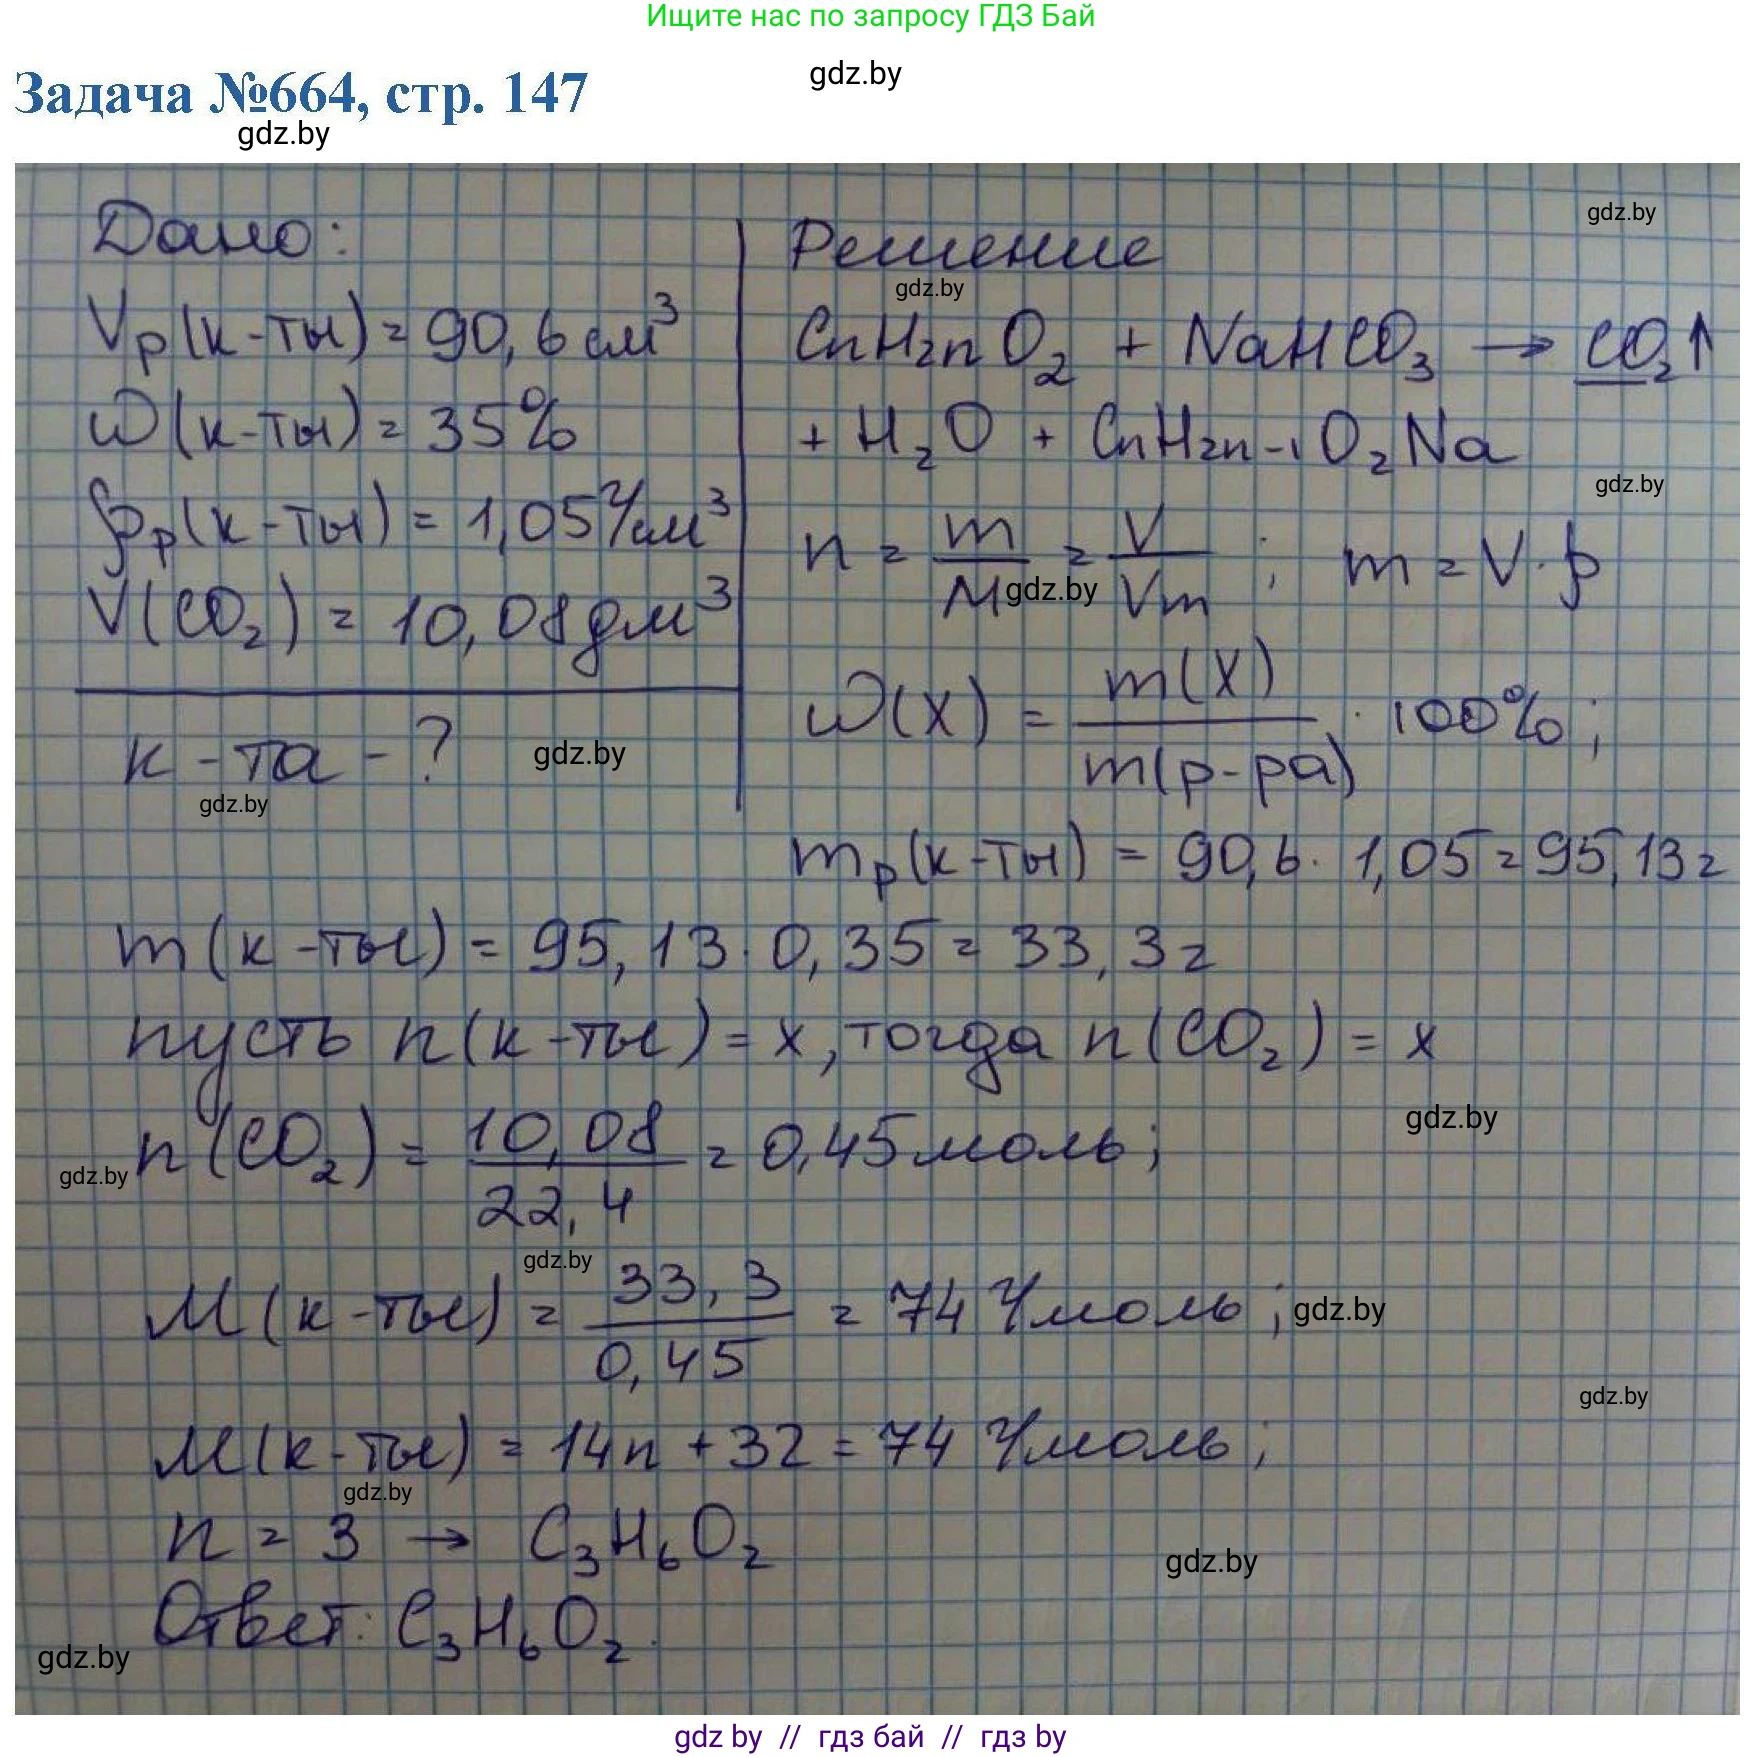 Ищите нас по запросу ГДЗ Бай
Задача №664, стр. 147
gdz.by
gdz.by
Дано:
Vр(к-ты) = 90,6 см³
ω(к-ты) = 35%
ρр(к-ты) = 1,05 г/см³
V(CO₂) = 10,08 дм³
к-та - ?
gdz.by
gdz.by
gdz.by
Решение
gdz.by
CnH2nO₂ + NaHCO₃ → CO₂↑
+ H₂O + CnH2n-1O₂Na
gdz.by
n = m/M = V/Vm ; m = V·ρ
gdz.by
ω(X) = m(X)/m(р-ра) · 100%;
mр(к-ты) = 90,6 · 1,05 = 95,13 г
m(к-ты) = 95,13 · 0,35 = 33,3 г
пусть n(к-ты) = x, тогда n(CO₂) = x
gdz.by
n(CO₂) = 10,08/22,4 = 0,45 моль;
gdz.by
gdz.by
M(к-ты) = 33,3/0,45 = 74 г/моль;
gdz.by
gdz.by
M(к-ты) = 14n + 32 = 74 г/моль;
gdz.by
n = 3 → C₃H₆O₂
gdz.by
Ответ: C₃H₆O₂.
gdz.by
gdz by // гдз бай // гдз by